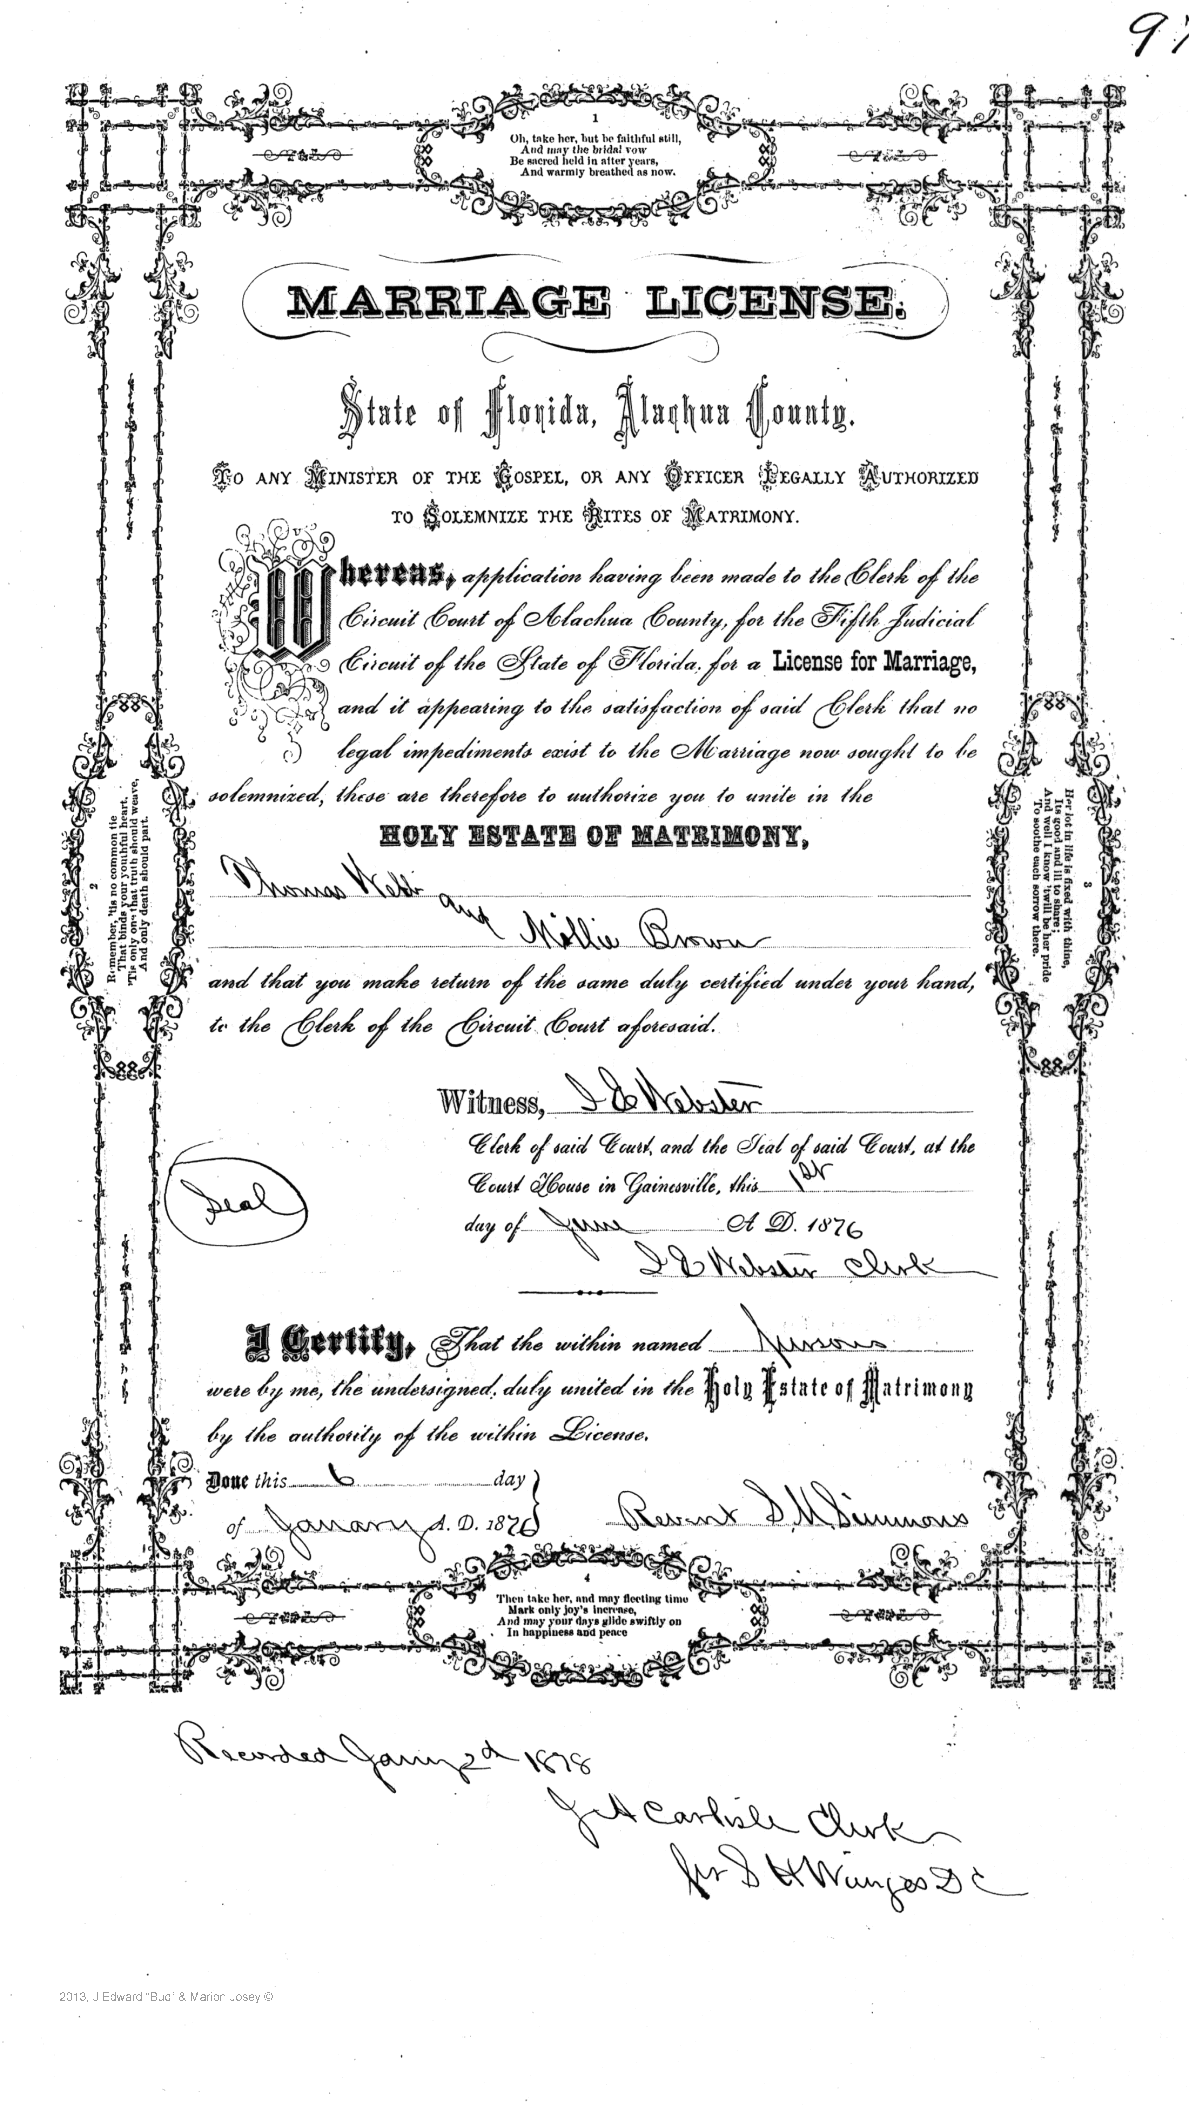 97
1
Oh, take her, but be faithful still,
And may the bridal vow
Be sacred held in after years,
And warmly breathed as now.
MARRIAGE LICENSE.
State of Florida, Alachua County.
TO ANY MINISTER OF THE GOSPEL, OR ANY OFFICER LEGALLY AUTHORIZED
TO SOLEMNIZE THE RITES OF MATRIMONY.
Whereas, application having been made to the Clerk of the
Circuit Court of Alachua County, for the Fifth Judicial
Circuit of the State of Florida, for a License for Marriage,
and it appearing to the satisfaction of said Clerk that no
legal impediments exist to the Marriage now sought to be
solemnized, these are therefore to authorize you to unite in the
HOLY ESTATE OF MATRIMONY,
Thomas Webb and
Mollie Brown
and that you make return of the same duly certified under your hand,
to the Clerk of the Circuit Court aforesaid.
2
Remember, 'tis no common tie
That binds your youthful heart,
'Tis only one that truth should weave,
And only death should part.
3
Her lot in life is fixed with thine,
Its good and ill to share;
And well I know 'twill be her pride
To soothe each sorrow there.
Witness, I E Webster
Clerk of said Court, and the Seal of said Court, at the
Court House in Gainesville, this 1st
day of June A D. 1876
I E Webster Clerk
Seal
I Certify, That the within named persons
were by me, the undersigned, duly united in the Holy Estate of Matrimony
by the authority of the within License.
Done this 6 day
of January A. D. 1876
Revent S. M. Simmons
4
Then take her, and may fleeting time
Mark only joy's increase,
And may your days glide swiftly on
In happiness and peace
Recorded Jany 2d 1878
J A Carlisle Clerk
per S H Wienges D C
2013, J Edward "Bud" & Marion Josey ©